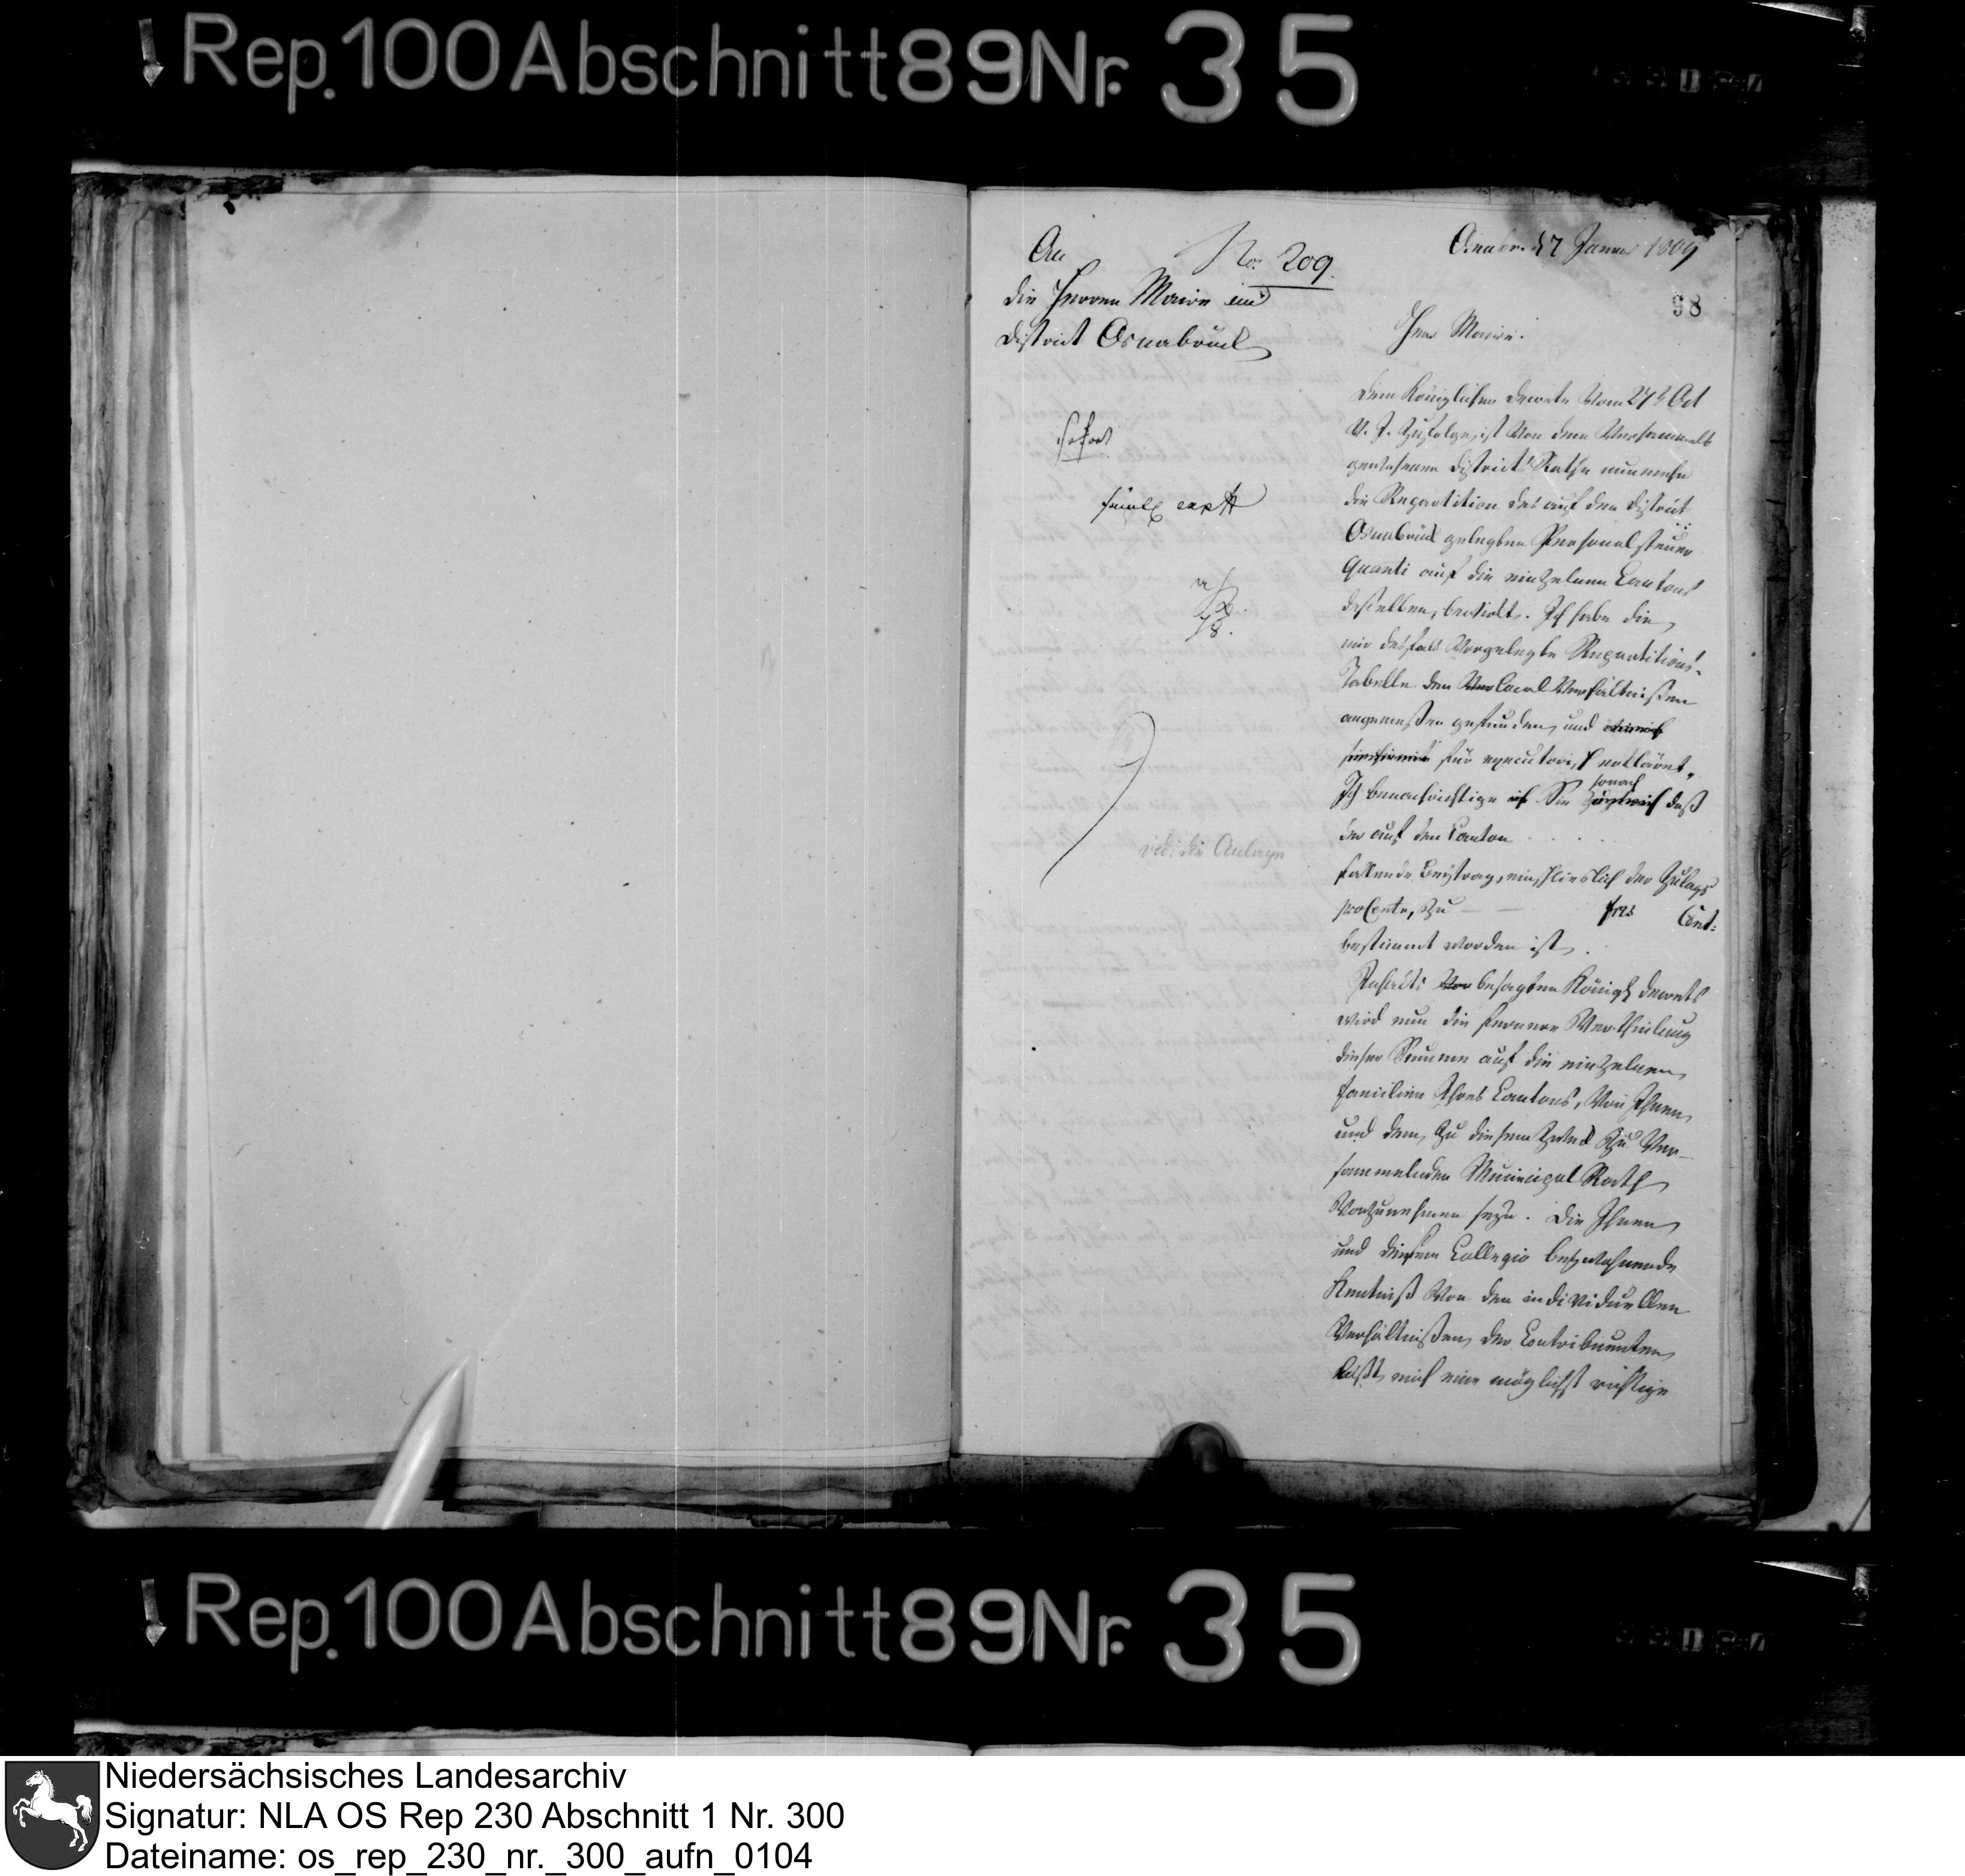 Rep. 100 Abschnitt 89 Nr. 35
An
No. 209.
die Herren Maire im
District Osnabrück
Osnabr. d 17 Januar 1809
98
Herr Maire.
sofort
vid: die Anlage
Dem Königlichen Decrete vom 27t Oct
v. J. zufolge, ist von dem versammelt
gewesenen Districts Rathe nunmehr
die Repartition des auf den District
Osnabrück gelegten Personalsteuer
Quanti auf die einzelnen Cantons
desselben, bewirkt. Ich habe die
mir desfals vorgelegte Repartitions-
Tabelle den Local Verhältnißen
angemeßen gefunden, und
für executorisch erklärt.
Ich benachrichtige Sie sonach daß
der auf den Canton
fallende Beytrag, einschlieslich der Zulags
procente, zu frcs Cent:
bestimmt worden ist.
Inhalts besagten Königl Decrets
wird nun die fernere Vertheilung
dieser Summe auf die einzelnen
Familien Ihres Cantons, von Ihnen
und dem, zu diesem Zweck zu ver-
sammelnden Municipal Rath
vorzunehmen seyn. Die Ihnen
und diesem Collegio beywohnende
Kentniß von den individuellen
Verhältnißen der Contribuenten
läßt mich eine möglichst richtige
Rep. 100 Abschnitt 89 Nr. 35
Niedersächsisches Landesarchiv
Signatur: NLA OS Rep 230 Abschnitt 1 Nr. 300
Dateiname: os_rep_230_nr._300_aufn_0104